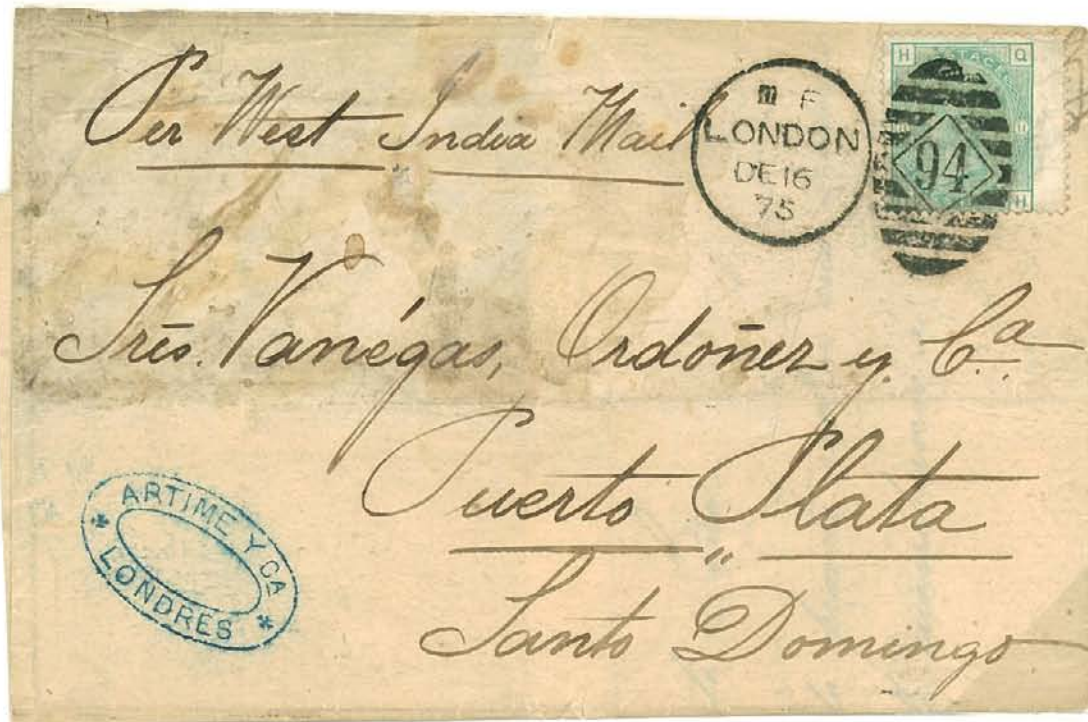 Per West India Mail
m F
LONDON
DE 16
75
94
H Q
H
Srēs. Vanégas, Ordoñez y Ca.
Puerto Plata
"
Santo Domingo
ARTIME Y CA
LONDRES